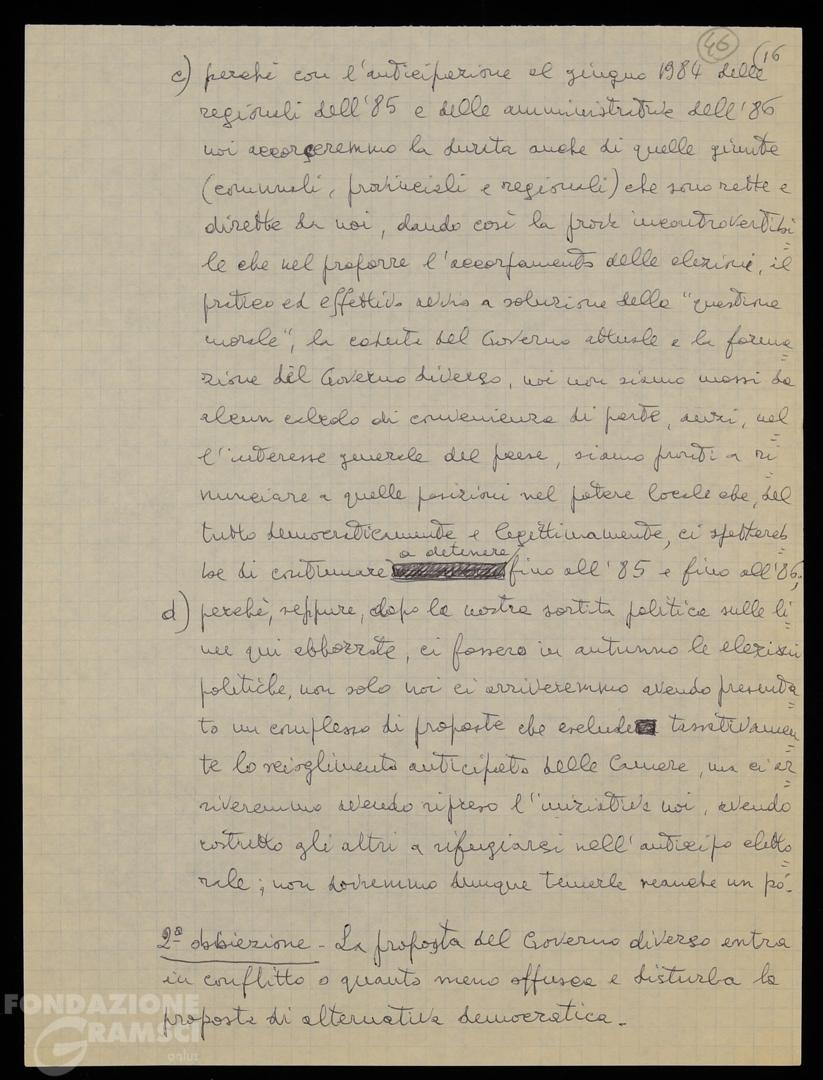 46
(16
c) perché con l'anticipazione al giugno 1984 delle
regionali dell'85 e delle amministrative dell'86
noi accorceremmo la durata anche di quelle giunte
(comunali, provinciali e regionali) che sono rette e
dirette da noi, dando così la prova incontrovertibi=
le che nel proporre l'accorpamento delle elezioni, il
pratico ed effettivo avvio a soluzione della "questione
morale", la caduta del Governo attuale e la forma=
zione del Governo diverso, noi non siamo mossi da
alcun calcolo di convenienza di parte, anzi, nel=
l'interesse generale del paese, siamo pronti a ri=
nunciare a quelle posizioni nel potere locale che, del
tutto democraticamente e legittimamente, ci spettereb=
a detenere
be di continuare fino all'85 e fino all'86;
d) perché, seppure, dopo la nostra sortita politica sulle li=
nee qui abbozzate, ci fossero in autunno le elezioni
politiche, non solo noi ci arriveremmo avendo presenta=
to un complesso di proposte che esclude tassativamen=
te lo scioglimento anticipato delle Camere, ma ci ar=
riveremmo avendo ripreso l'iniziativa noi, avendo
costretto gli altri a rifugiarsi nell'anticipo eletto=
rale; non dovremmo dunque temerle neanche un pó.
2ª obbiezione - La proposta del Governo diverso entra
in conflitto o quanto meno offusca e disturba la
proposta di alternativa democratica.
FONDAZIONE
GRAMSCI
onlus